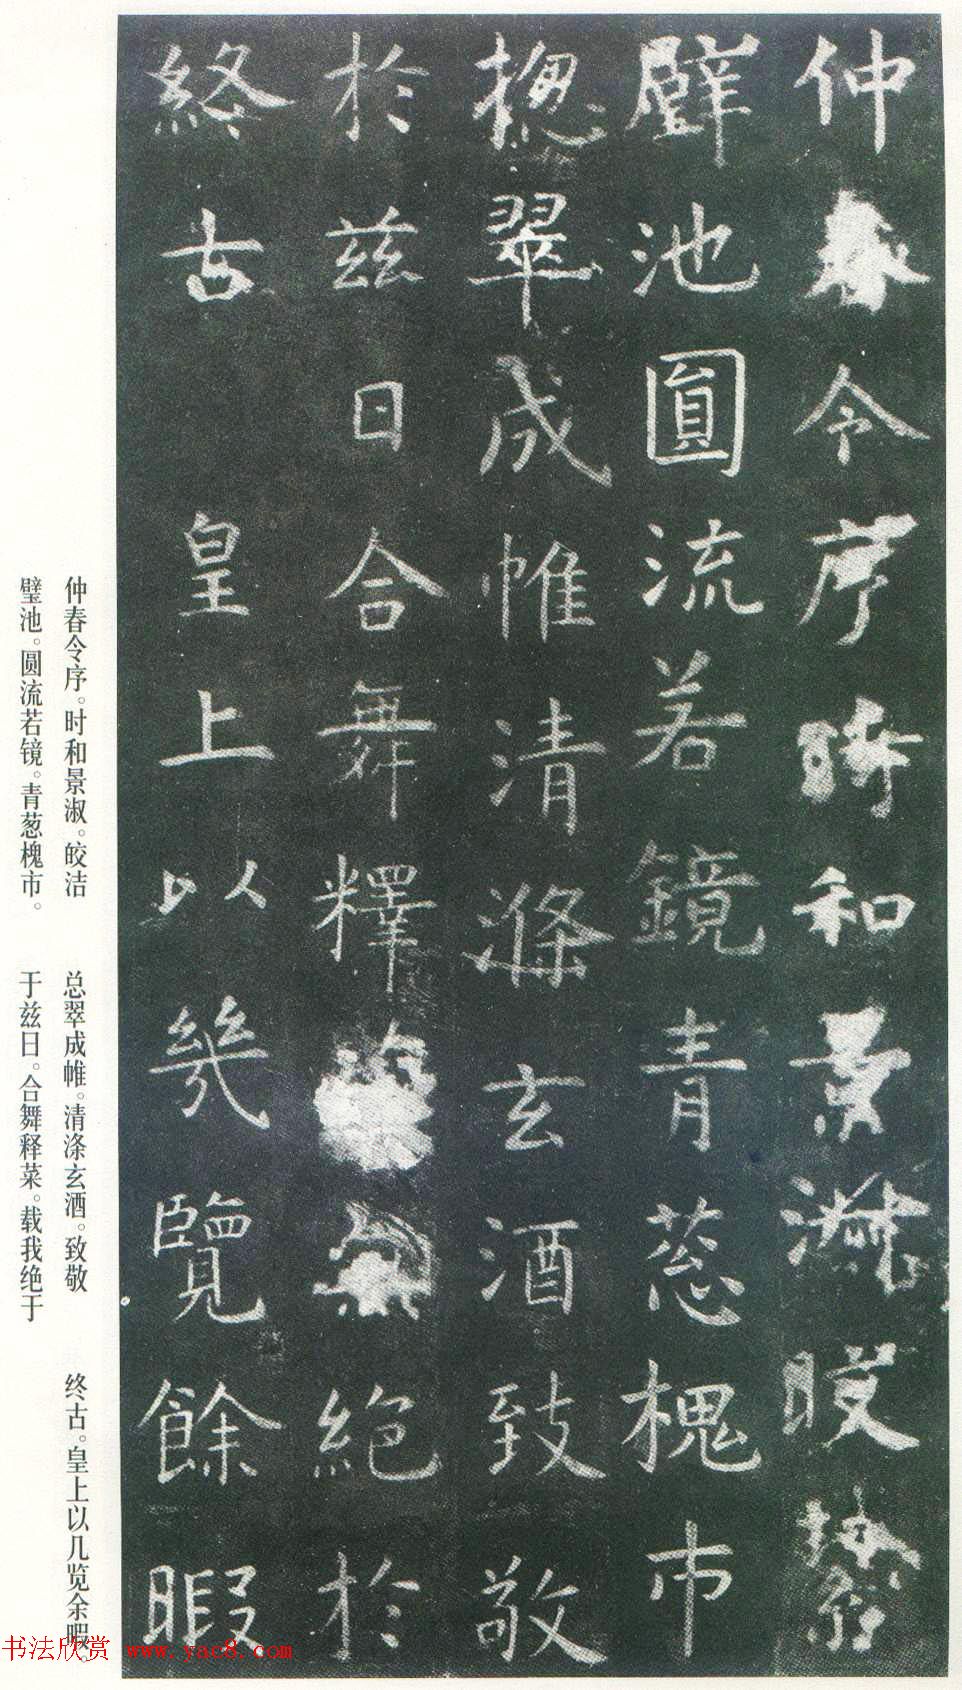 仲春令序時和景淑
璧池圓流若鏡青葱槐市
揔翠成帷清滌玄酒致敬
於兹日合舞釋絶於
終古 皇上以幾覽餘暇
仲春令序。时和景淑。皎洁
璧池。圆流若镜。青葱槐市。
总翠成帷。清涤玄酒。致敬
于兹日。合舞释菜。载我绝于
终古。皇上以几览余暇。
书法欣赏 www.yac8.com